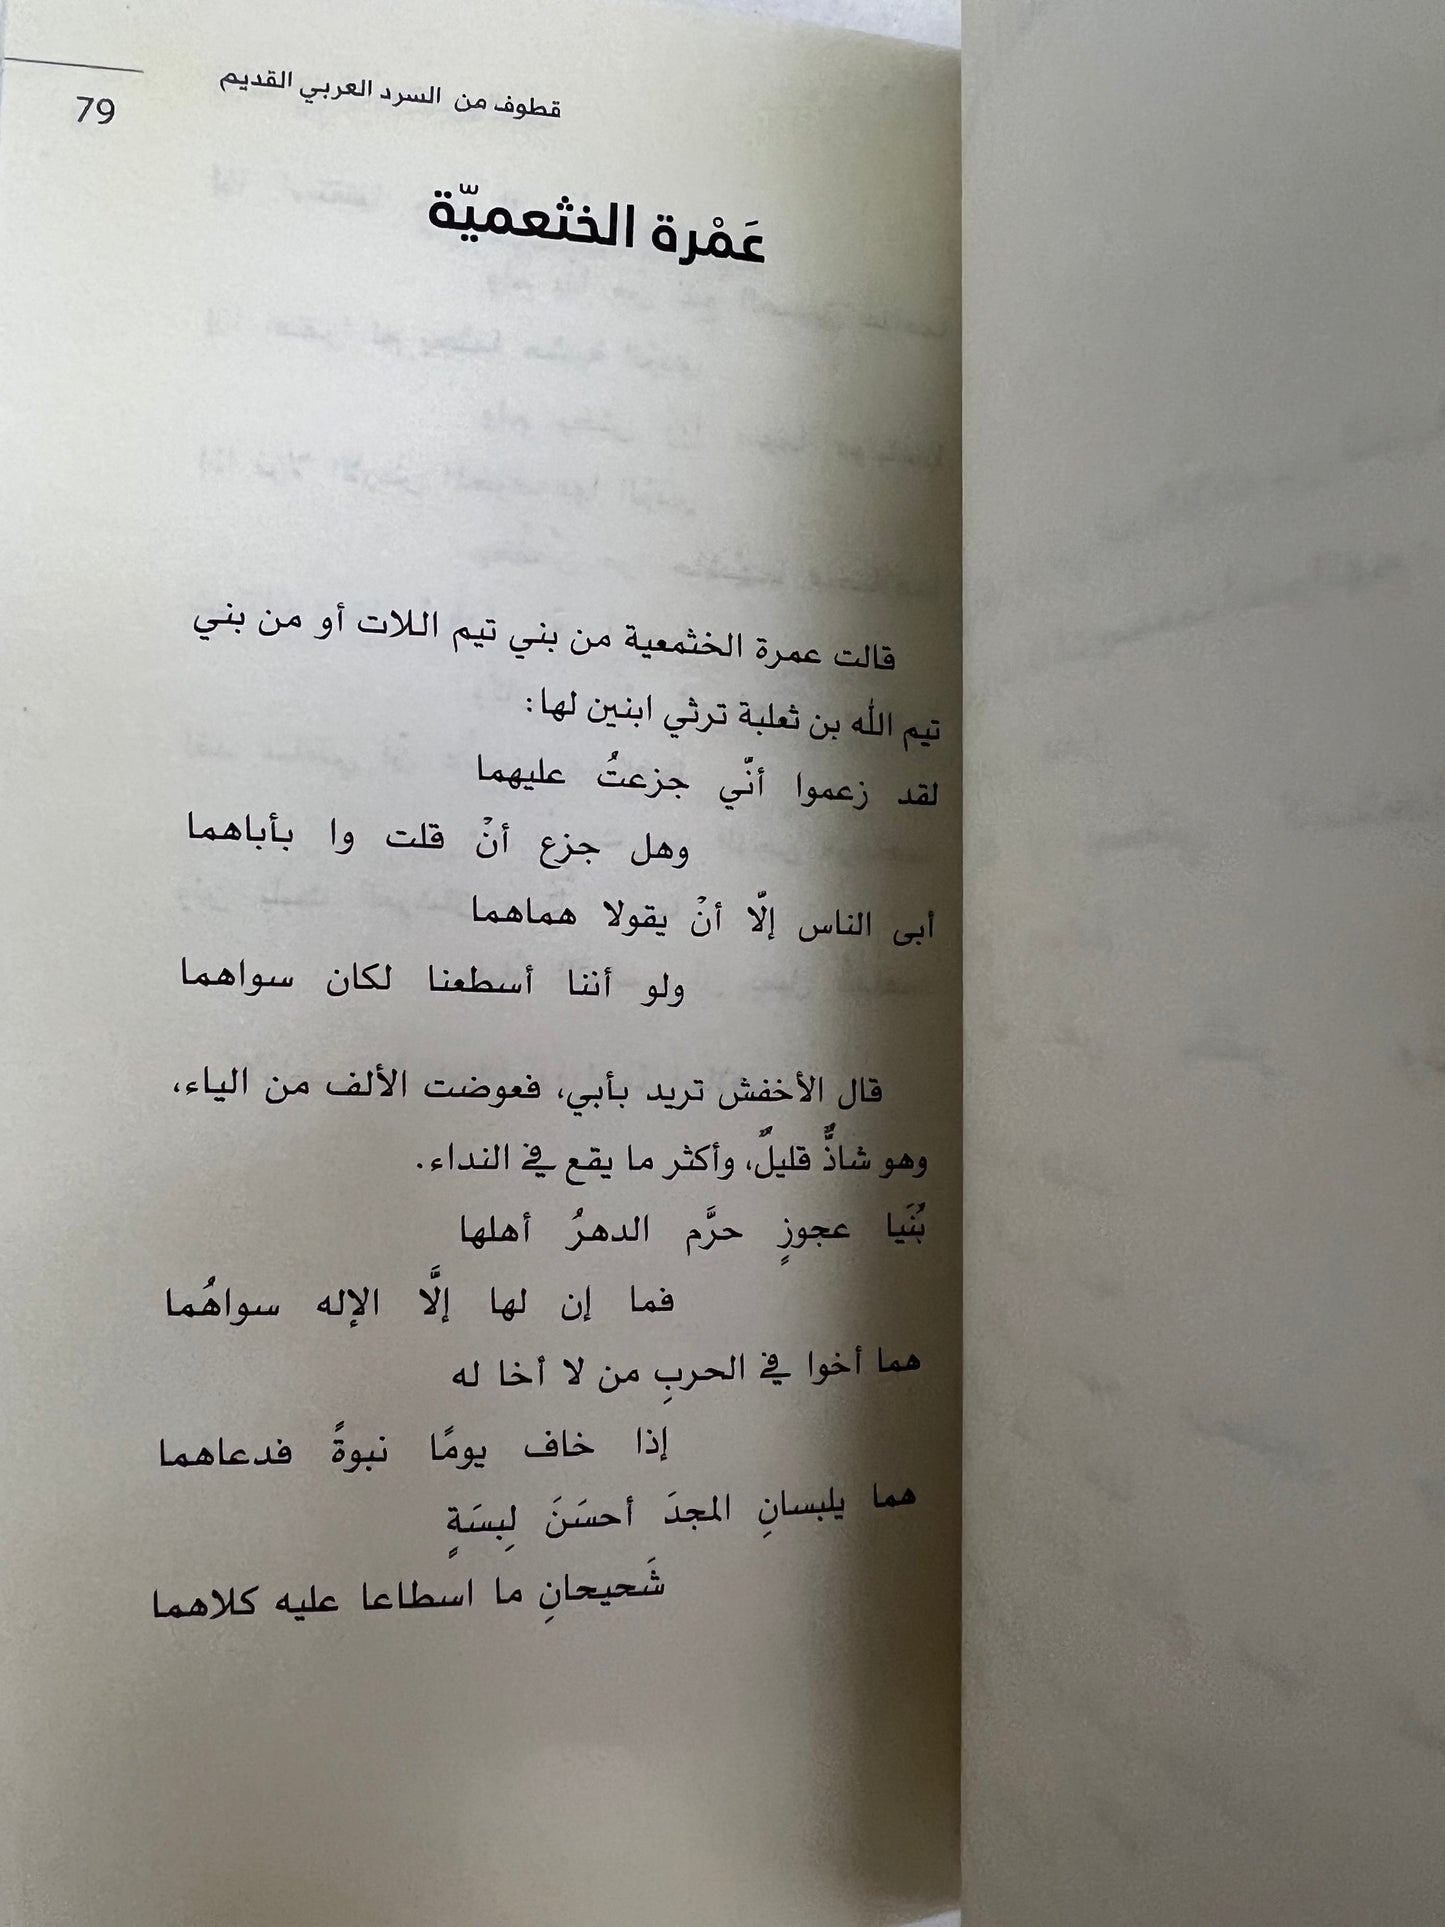 قطوف من السرد العربي القديم
79
عَمْرة الخثعميّة
قالت عمرة الخثمعية من بني تيم اللات أو من بني
تيم الله بن ثعلبة ترثي ابنين لها:
لقد زعموا أنّي جزعتُ عليهما
وهل جزع أنْ قلت وا بأباهما
أبى الناس إلّا أنْ يقولا هماهما
ولو أننا أسطعنا لكان سواهما
قال الأخفش تريد بأبي، فعوضت الألف من الياء،
وهو شاذٌّ قليلٌ، وأكثر ما يقع في النداء.
بُنَيا عجوزٍ حرَّم الدهرُ أهلها
فما إن لها إلَّا الإله سواهُما
هما أخوا في الحربِ من لا أخا له
إذا خاف يومًا نبوةً فدعاهما
هما يلبسانِ المجدَ أحسَنَ لِبسَةٍ
شَحيحانِ ما اسطاعا عليه كلاهما